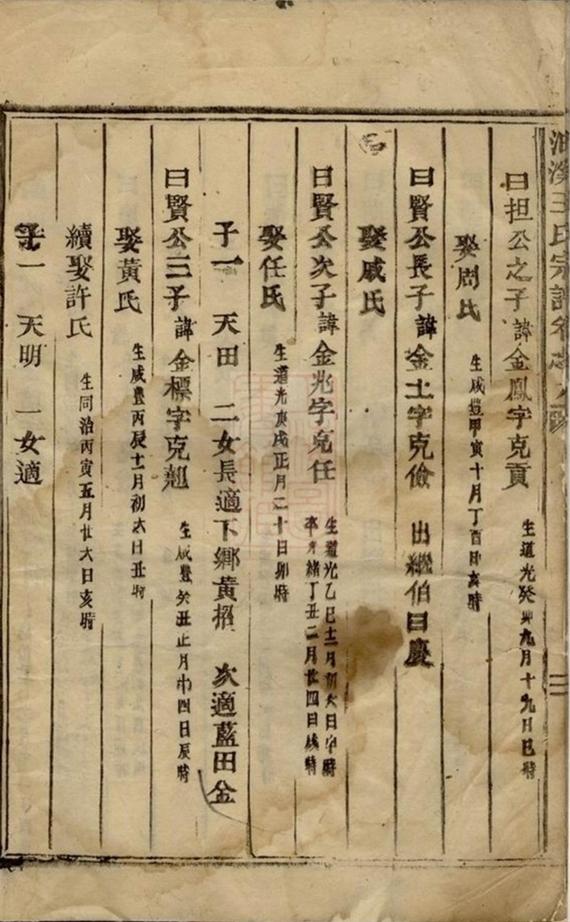 王氏宗譜卷
曰担公之子諱金鳳字克貢 生道光癸卯九月十九日巳時
娶周氏 生咸豐甲寅十月丁酉日亥時
曰賢公長子諱金土字克儉 出繼伯曰慶
娶戚氏
曰賢公次子諱金兆字克任 生道光乙巳十二月初六日 時
卒光緒丁丑二月廿四日 時
娶任氏 生道光庚戌正月二十日卯時
子一 天田 二女長適下鄉黃招 次適藍田金
曰賢公三子諱金標字克翹 生咸豐癸丑正月 四日辰時
娶黃氏 生咸豐丙辰十二月初六日丑時
續娶許氏 生同治丙寅五月廿六日亥時
子一 天明 一女適